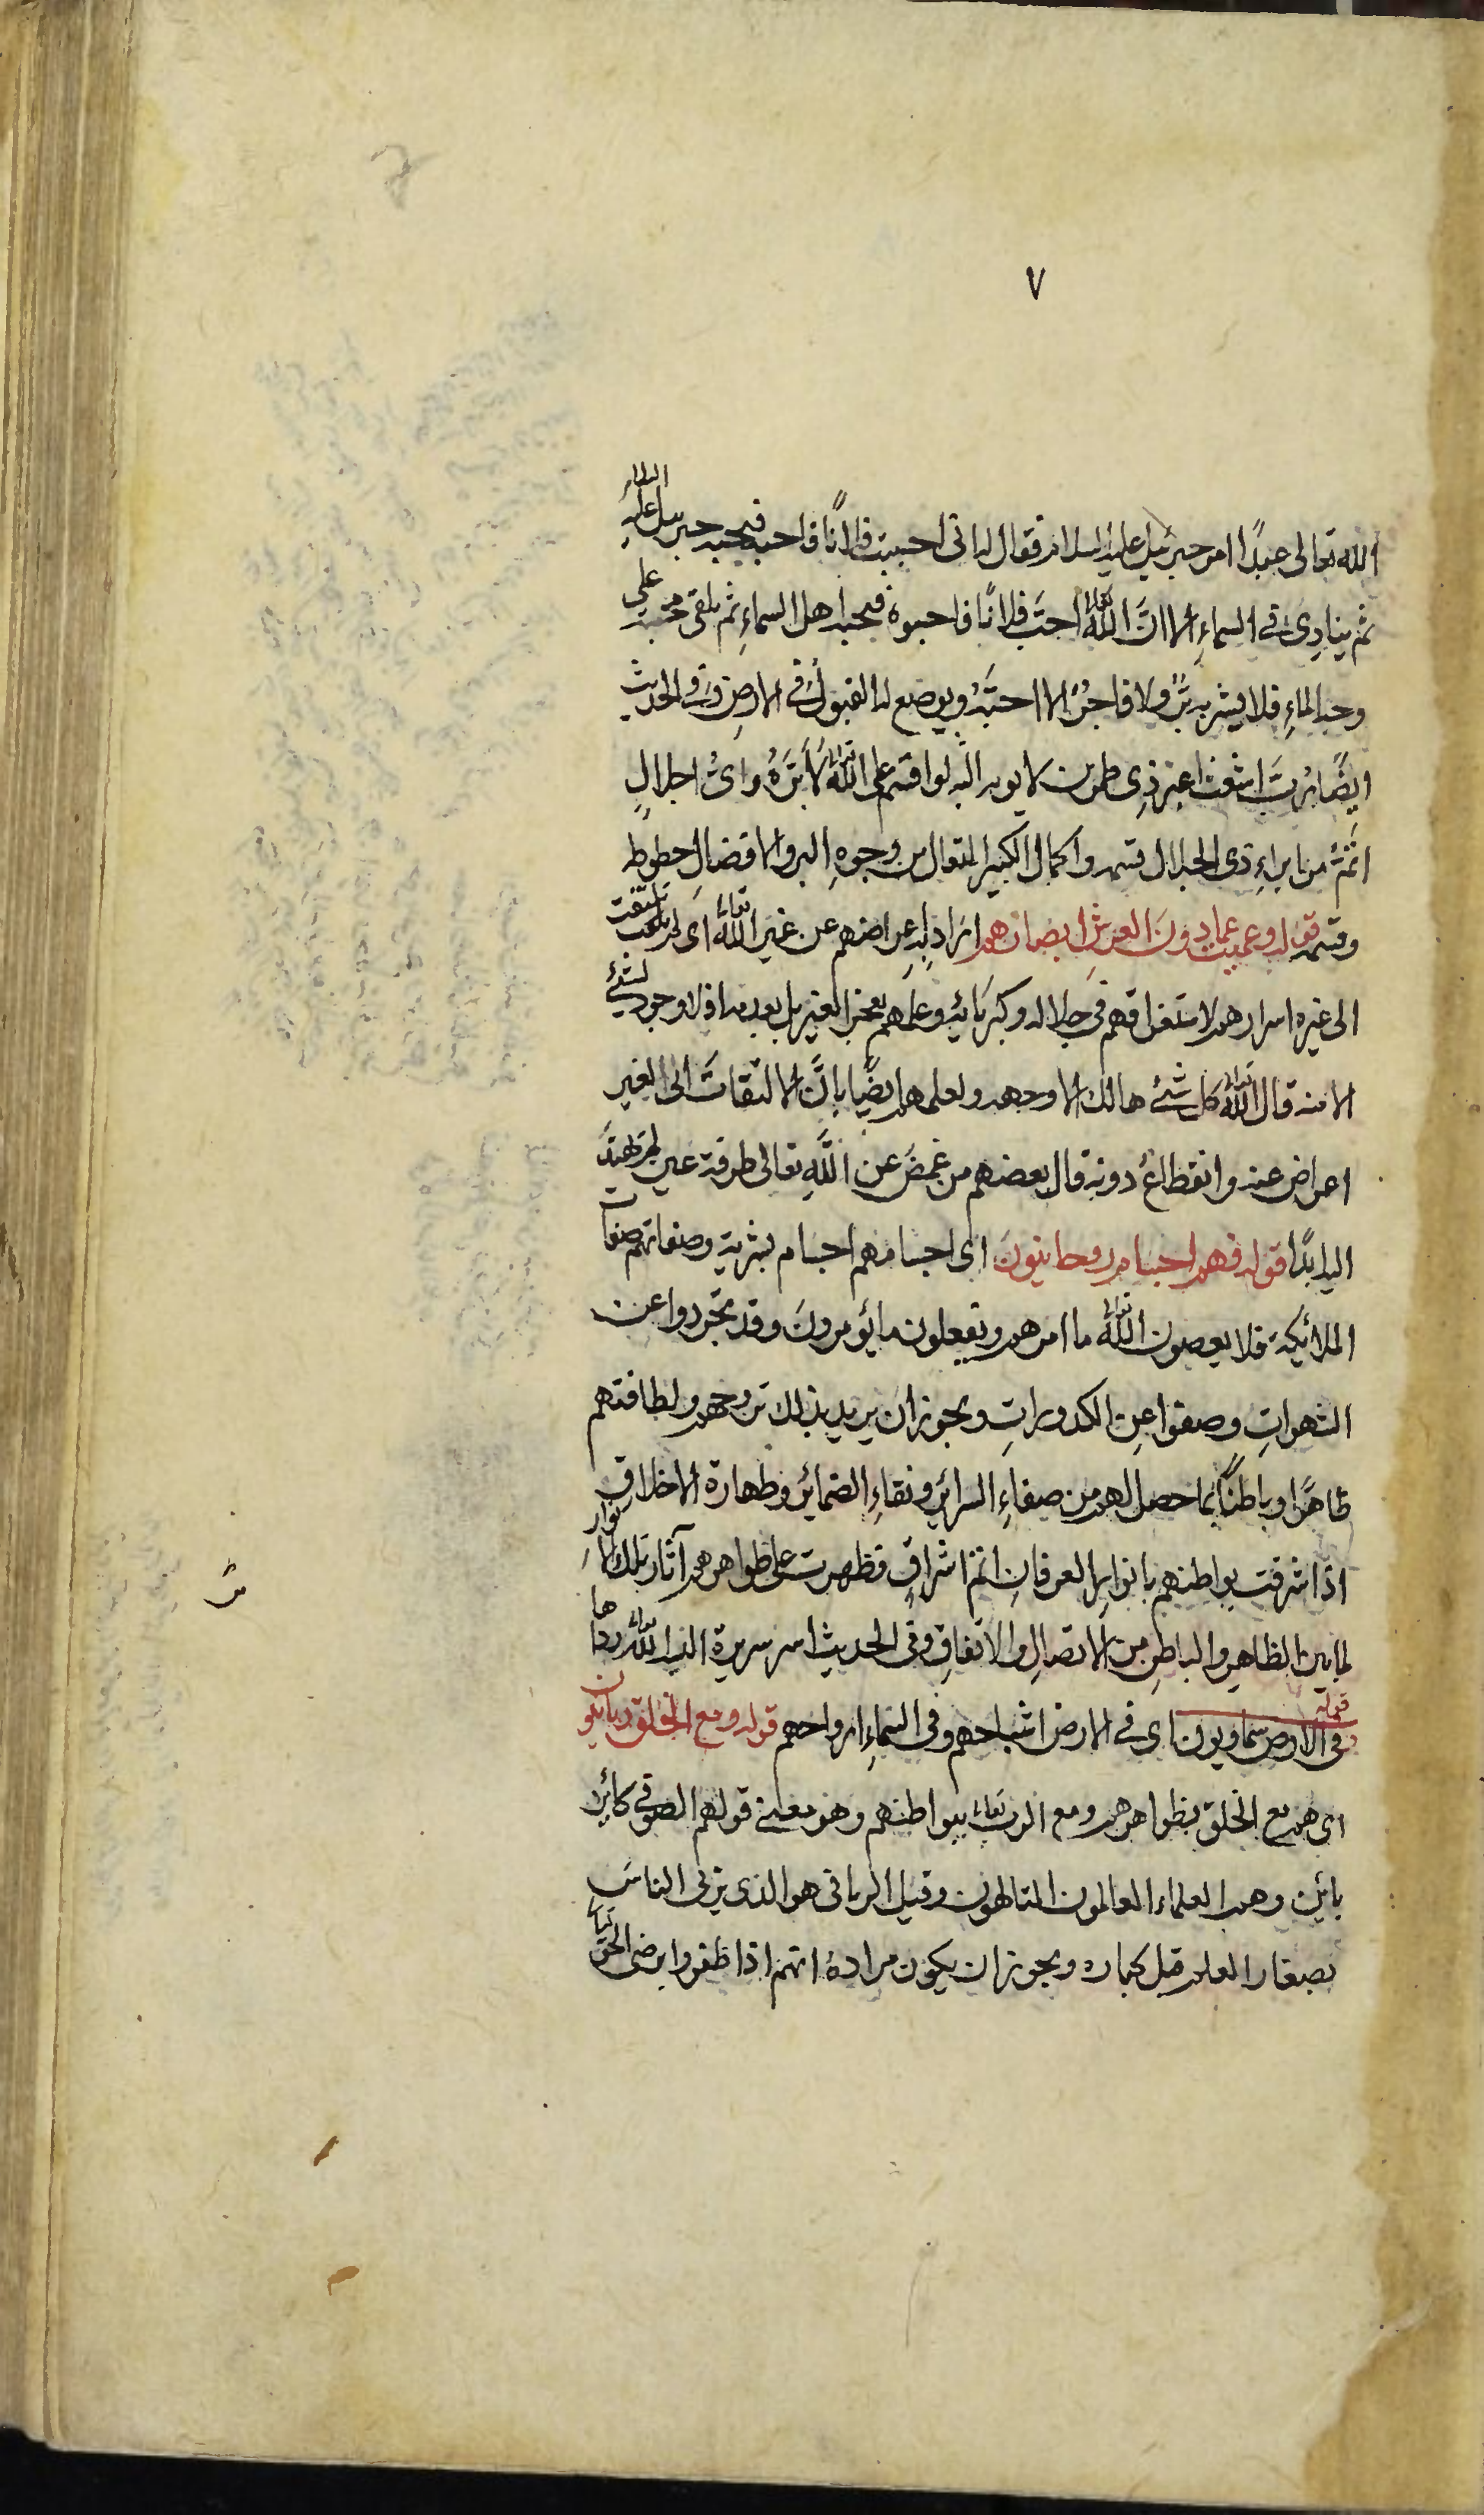 ٧
الله تعالى عبدًا امر جبرئيل عليه السلام فقال له انى احببت فلانًا فاحبه فيحبه جبرئيل عليه السلام
ثم ينادى فى السماءِ الا انَّ الله تعالى احبَّ فلانًا فاحبوه فيحبه اهل السماءِ ثم يلقى محبته على
وجه الماءِ فلا يشربه برٌّ ولا فاجرٌ الا احبَّهُ ويوضع له القبولُ فى الارضِ وفى الحديث
ايضًا رُبَّ اشعث اغبر ذِى طمرين لا يوبه اليه لو اقسم على الله تعالى لَاَبَرَّهُ واىُّ اجلالٍ
اتمُّ من ابراءِ ذى الجلال قسمه واكمال الكبير المتعال من وجوهِ البر والافضالِ حظوظه
وقسمه قوله وعميت عما دونَ العرشِ ابصارهم ارَادَ بِهِ اِعراضهم عن غير الله تعالى اى لم تلتفت
الى غيره اسرارهم لاستغراقهم فى جلاله وكبريائِه وعلمهم بعجز الغير بل بعدمه اذ لا وجود لشئ
الا منه قال الله تعالى كل شئ هالك الا وجهه ولعلمهم ايضًا بانَّ الالتفاتَ الى الغير
اعراض عنه وانقطاعٌ دونه قال بعضهم من غمضَ عن اللهِ تعالى طرفة عين لم يهتد
اليه ابدًا قوله فهم اجسام روحانيونَ اى اجسامهم اجسام بشرية وصفاتهم صفات
الملائكة فلا يعصون الله تعالى ما امرهم ويفعلون ما يؤمرونَ وقد تجردوا عن
الشهواتِ وصفوا عن الكدوراتِ ويجوز ان يريد بذلك تروحهم ولطافتهم
ظاهرًا وباطنًا بما حصل لهم من صفاءِ السرائر ونقاءِ الضمائر وطهارة الاخلاق
اذ اشرقت بواطنهم بانوارِ العرفانِ اتم اشراقٍ فظهرت على ظواهرهم آثار تلك الانوار
لما بين الظاهرِ والباطنِ من الاتصالِ والاتفاقِ وفى الحديث اسر سريرة البسه الله تعالى رداها
قوله وفى الارض سماويون اى فى الارض اشباحهم وفى السماءِ ارواحهم قوله ومع الخلق ربانيون
اى هم مع الخلق بظواهرهم ومع الرب تعالى ببواطنهم وهو معنى قولهم الصوفى كائن
بائن وهم العلماء العالمون المتالهون وقيل الربانى هو الذى يربى الناسَ
بصغار العلم قبل كباره ويجوز ان يكون مراده انهم اذا ظفروا برضى الحق تعالى